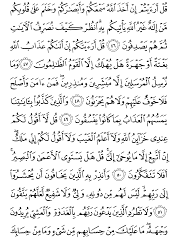 قُلْ أَرَءَيْتُمْ إِنْ أَخَذَ ٱللَّهُ سَمْعَكُمْ وَأَبْصَٰرَكُمْ وَخَتَمَ عَلَىٰ قُلُوبِكُم
مَّنْ إِلَٰهٌ غَيْرُ ٱللَّهِ يَأْتِيكُم بِهِۗ ٱنظُرْ كَيْفَ نُصَرِّفُ ٱلْءَايَٰتِ
ثُمَّ هُمْ يَصْدِفُونَ ٤٦ قُلْ أَرَءَيْتَكُمْ إِنْ أَتَىٰكُمْ عَذَابُ ٱللَّهِ
بَغْتَةً أَوْ جَهْرَةً هَلْ يُهْلَكُ إِلَّا ٱلْقَوْمُ ٱلظَّٰلِمُونَ ٤٧ وَمَا
نُرْسِلُ ٱلْمُرْسَلِينَ إِلَّا مُبَشِّرِينَ وَمُنذِرِينَۖ فَمَنْ ءَامَنَ وَأَصْلَحَ
فَلَا خَوْفٌ عَلَيْهِمْ وَلَا هُمْ يَحْزَنُونَ ٤٨ وَٱلَّذِينَ كَذَّبُوا۟ بِـَٔايَٰتِنَا
يَمَسُّهُمُ ٱلْعَذَابُ بِمَا كَانُوا۟ يَفْسُقُونَ ٤٩ قُل لَّآ أَقُولُ لَكُمْ
عِندِى خَزَآئِنُ ٱللَّهِ وَلَآ أَعْلَمُ ٱلْغَيْبَ وَلَآ أَقُولُ لَكُمْ إِنِّى مَلَكٌۖ
إِنْ أَتَّبِعُ إِلَّا مَا يُوحَىٰٓ إِلَىَّۚ قُلْ هَلْ يَسْتَوِى ٱلْأَعْمَىٰ وَٱلْبَصِيرُۚ
أَفَلَا تَتَفَكَّرُونَ ٥٠ وَأَنذِرْ بِهِ ٱلَّذِينَ يَخَافُونَ أَن يُحْشَرُوٓا۟
إِلَىٰ رَبِّهِمْۙ لَيْسَ لَهُم مِّن دُونِهِۦ وَلِىٌّ وَلَا شَفِيعٌ لَّعَلَّهُمْ يَتَّقُونَ
٥١ وَلَا تَطْرُدِ ٱلَّذِينَ يَدْعُونَ رَبَّهُم بِٱلْغَدَوٰةِ وَٱلْعَشِىِّ يُرِيدُونَ
وَجْهَهُۥۖ مَا عَلَيْكَ مِنْ حِسَابِهِم مِّن شَىْءٍ وَمَا مِنْ حِسَابِكَ